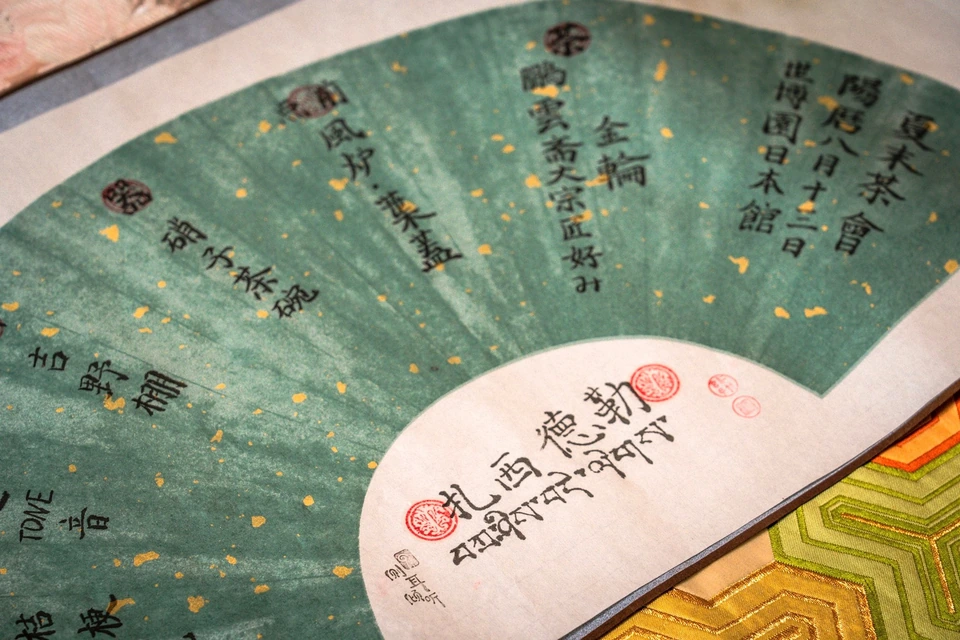 夏末茶會
陽曆八月十二日
世博園日本館
茶
金輪
鵬雲斎大宗匠好み
風炉・葉蓋
器
硝子茶碗
吉野棚
TONE
音
桔梗
扎西德勒